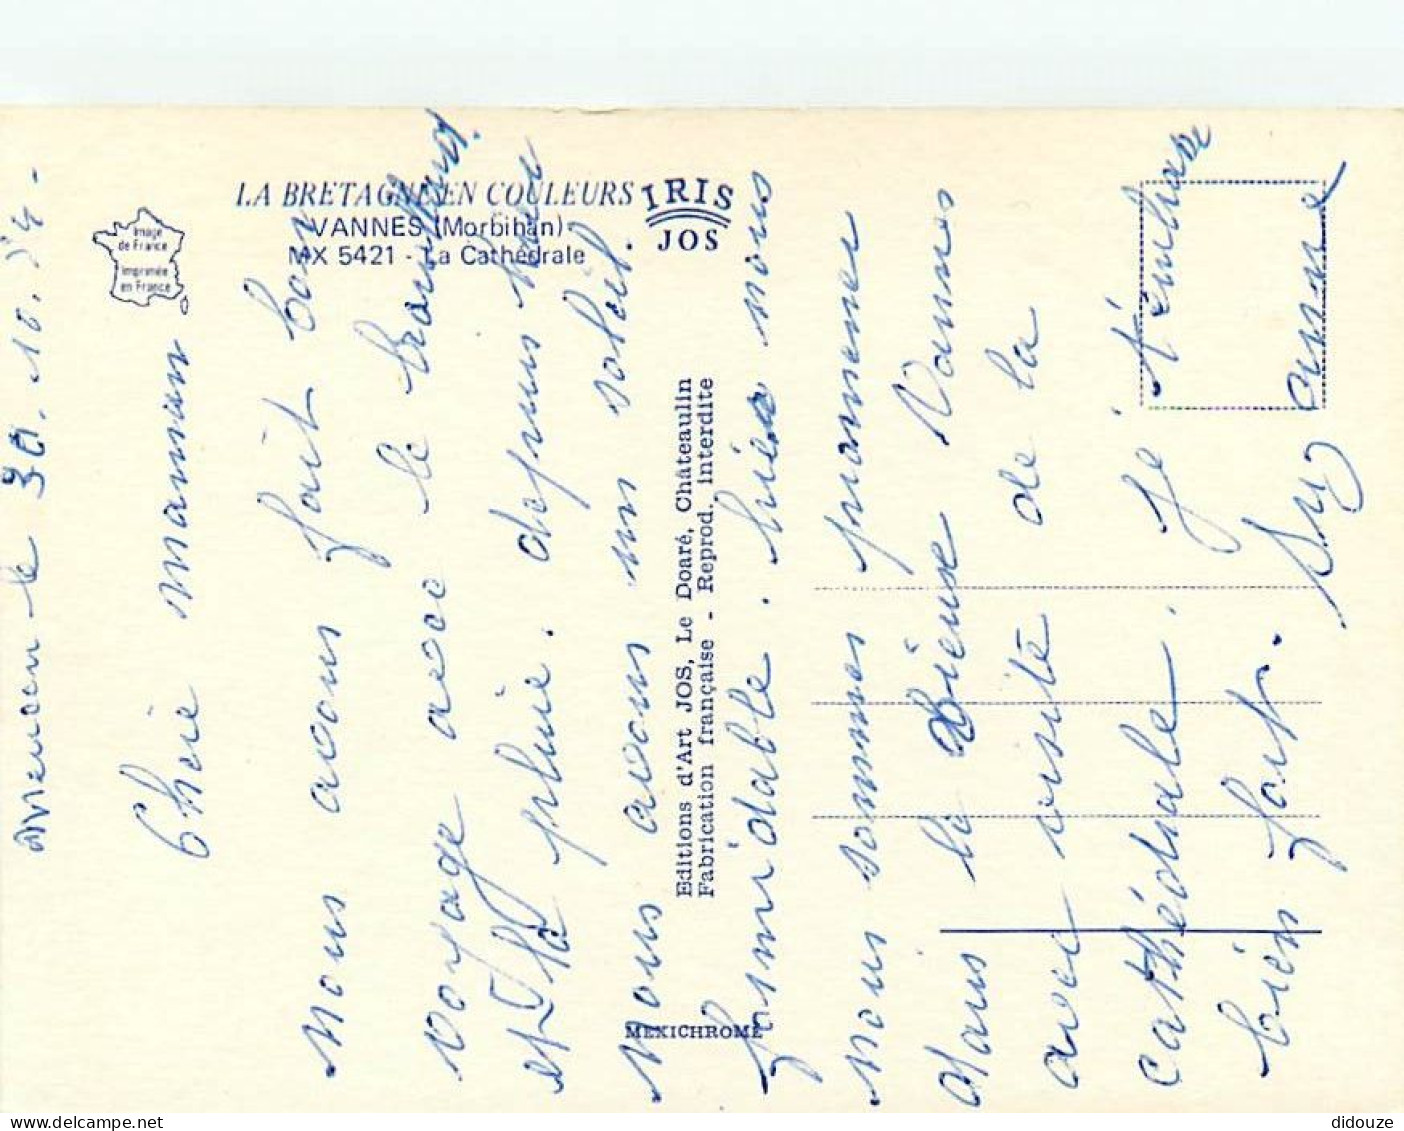 LA BRETAGNE EN COULEURS
VANNES (Morbihan)
MX 5421 - La Cathédrale
IRIS
JOS
Image
de France
Imprimée
en France
Editions d'Art JOS, Le Doaré, Châteaulin
Fabrication française - Reprod. interdite
MEXICHROME
le 30.10.74-
Cherie maman
Nous avons fait bon
voyage avec le brouillard
et la pluie. depuis hier
nous avons un soleil.
formidable. hier nous
nous sommes promener
dans le vieux Vannes
avec visite de la
cathédrale. Je t'embrasse
bien fort. Suzanne
didouze